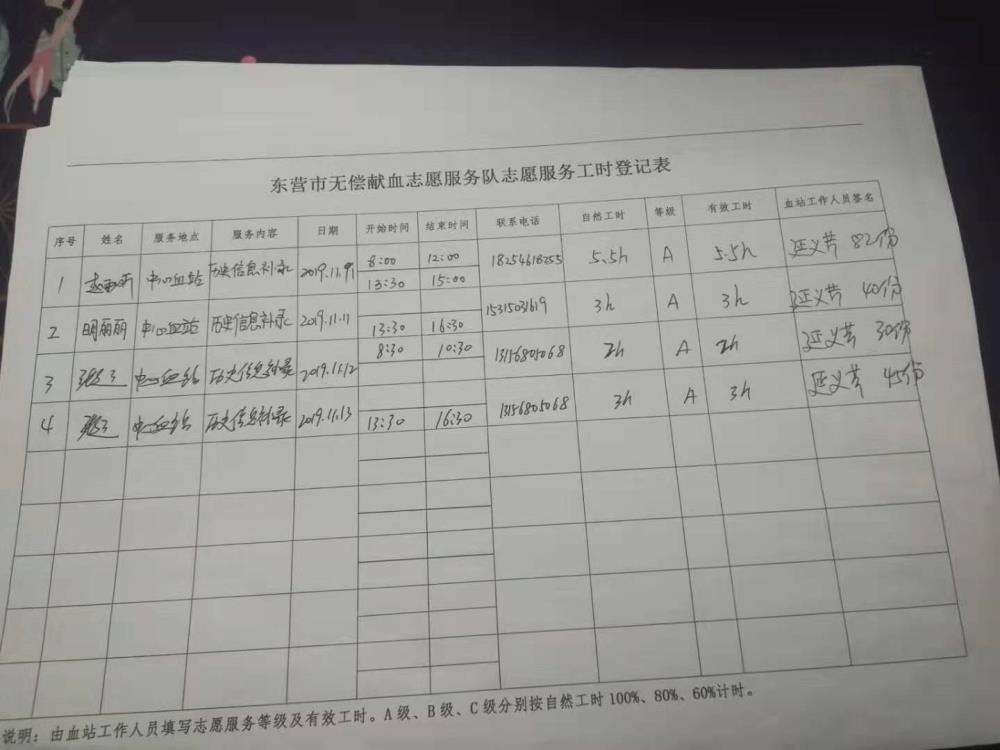 东营市无偿献血志愿服务队志愿服务工时登记表
序号 姓名 服务地点 服务内容 日期 开始时间 结束时间 联系电话 自然工时 等级 有效工时 血站工作人员签名
1 中心血站 历史信息补录 2019.11.9 8:00 12:00 18254618255 5.5h A 5.5h 延义芳 82份
13:30 15:00
2 明丽丽 中心血站 历史信息补录 2019.11.11 13:30 16:30 15315031619 3h A 3h 延义芳 40份
3 中心血站 历史信息补录 2019.11.12 8:30 10:30 13156805068 2h A 2h 延义芳 30份
4 中心血站 历史信息补录 2019.11.13 13:30 16:30 13156805068 3h A 3h 延义芳 45份
说明：由血站工作人员填写志愿服务等级及有效工时。A级、B级、C级分别按自然工时100%、80%、60%计时。